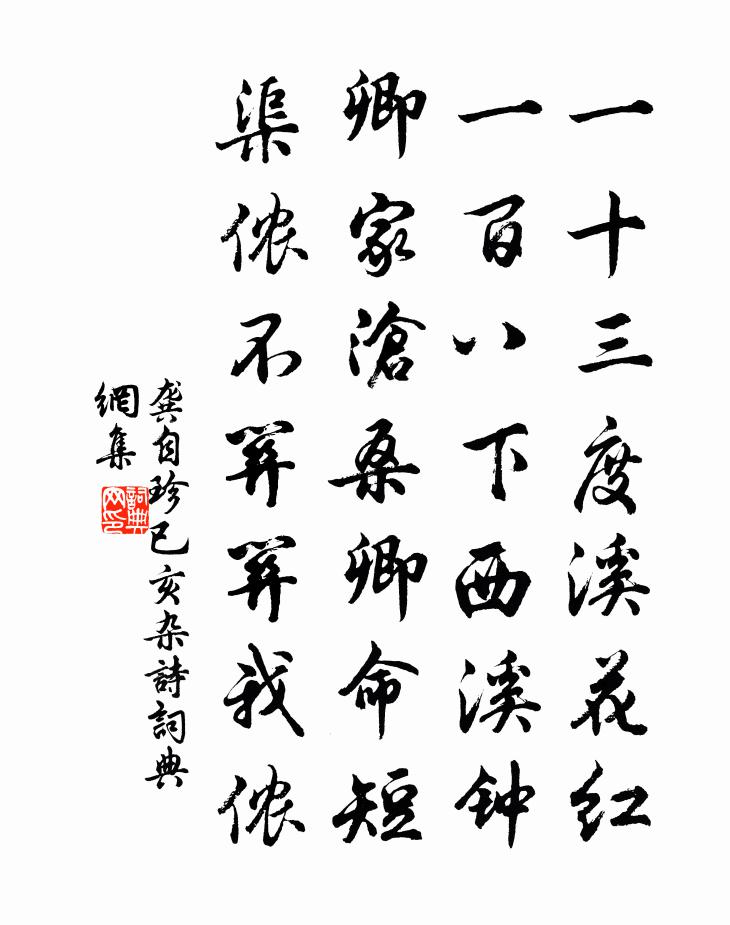 一十三度溪花红
一百八下西溪钟
卿家滄桑卿命短
渠侬不关关我侬
龔自珍己亥杂詩詞典
網集
詞典
网印